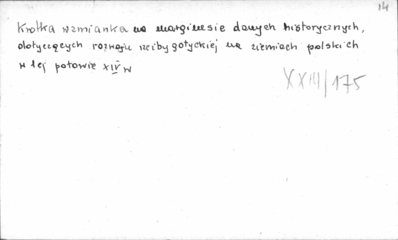 14
Krótka wzmianka na marginesie danych historycznych,
dotyczących rozwoju rzeźby gotyckiej na ziemiach polskich
w 1ej połowie XIV w
XXIII/175